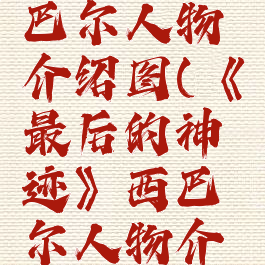 巴尔人物
介绍图(《
最后的神
迹》西巴
尔人物介